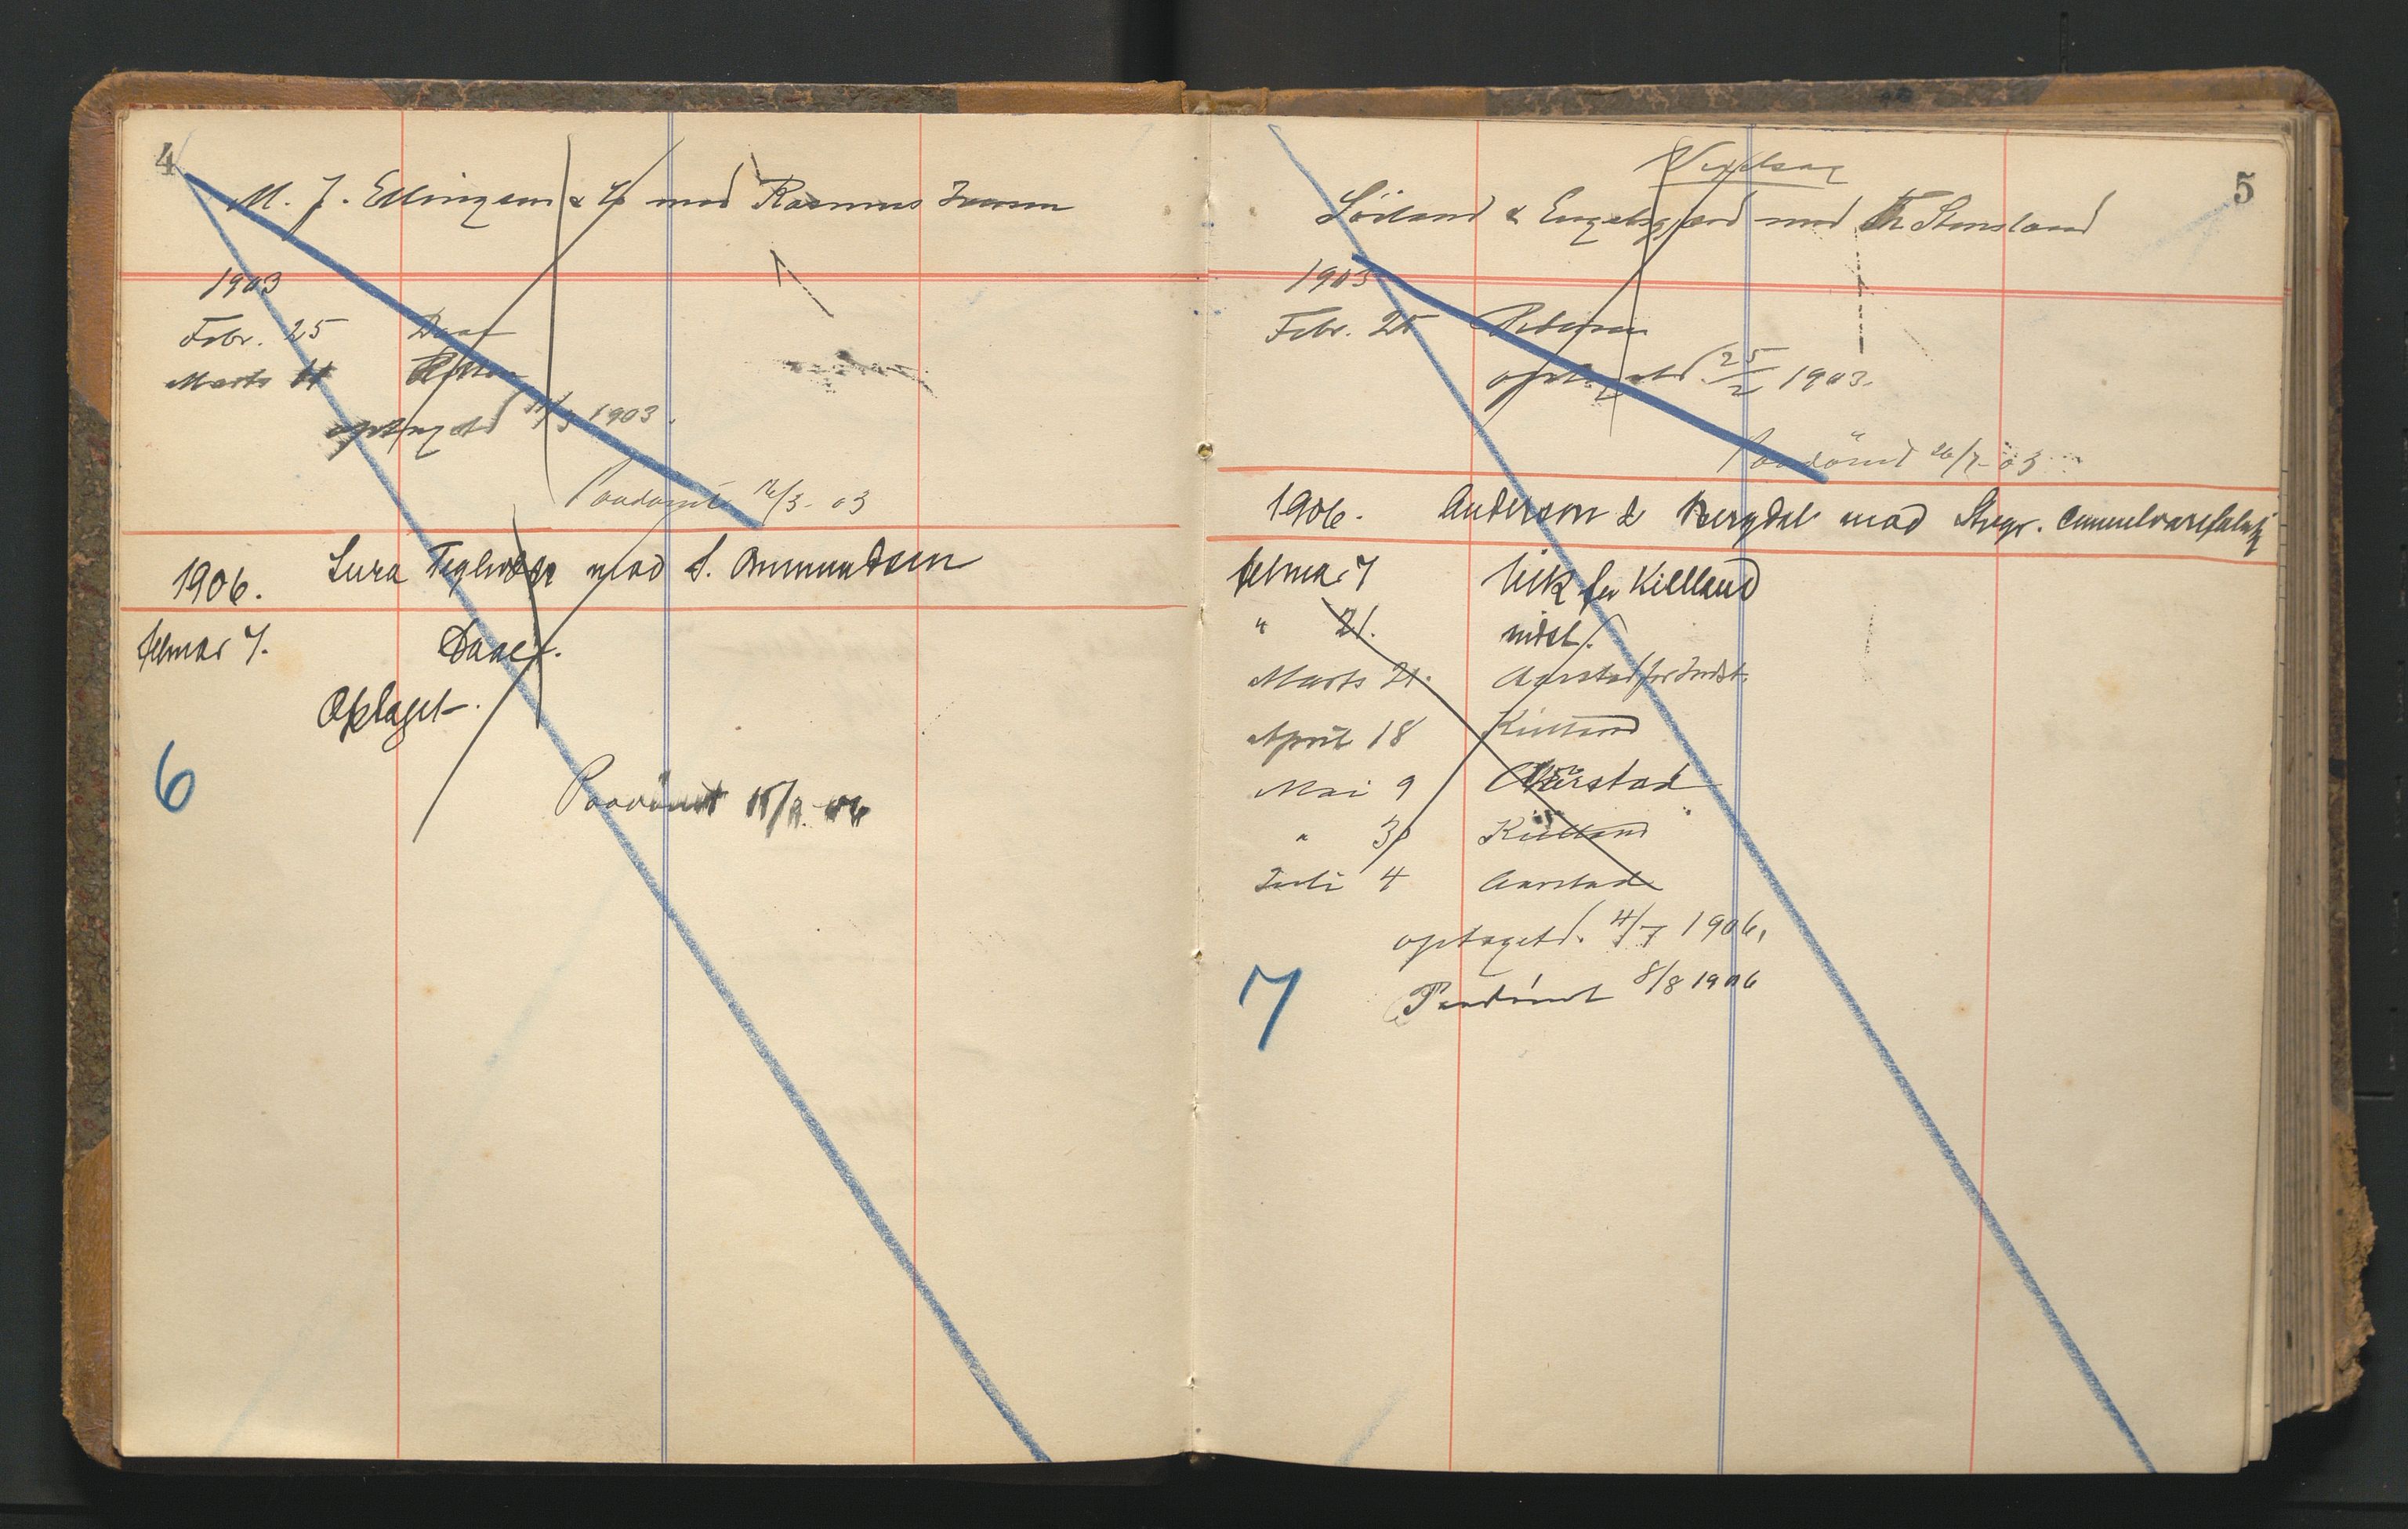 4
M. J. Ellingsen & Co mod Rasmus Iversen
1903
Febr. 25 Daae
Marts 11
optaget d 11/3 1903.
Paadømt 16/3 - 03
1906. Lura Teglverk mod S. Ommundsen
februar 7. Daae.
Optaget.
6
Paadømt
5
Vexelsag
Sørland & Engelsgjerd mod Th Stensland
1903
Febr. 25
optaget d. 25/2 1903.
Paadømt 26/2 - 03
1906. Anderson & Bergdal mod Stvgr.
februar 7 for Kielland
" 21. indst.
Marts 21. Aarstad for Indst.
April 18 Kielland
Mai 9 Aarstad
" 30 Kielland
Juli 4 Aarstad
optaget d. 4/7 1906.
7
Paadømt 8/8 1906